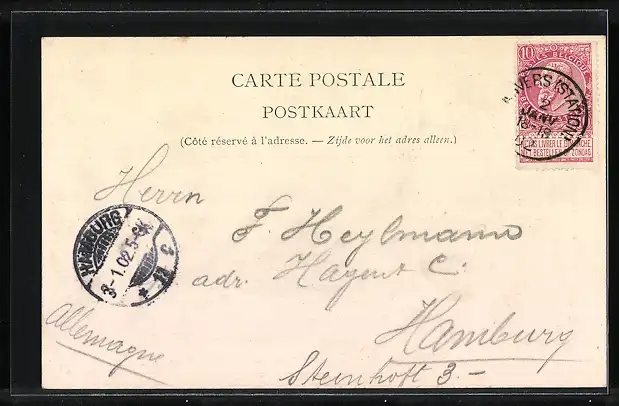 CARTE POSTALE
POSTKAART
(Côté réservé à l'adresse. — Zijde voor het adres alleen.)
10
BELGIQUE
NE PAS LIVRER LE DIMANCHE
NIET BESTELLEN OP ZONDAG
ANVERS (STATION)
2
JANV
18-19
02
Herrn
F. Heylmann
adr. Hagent C.
Hamburg
Steinhöft 3.-
Allemagne
HAMBURG
3-1.02.5-6N
3 *